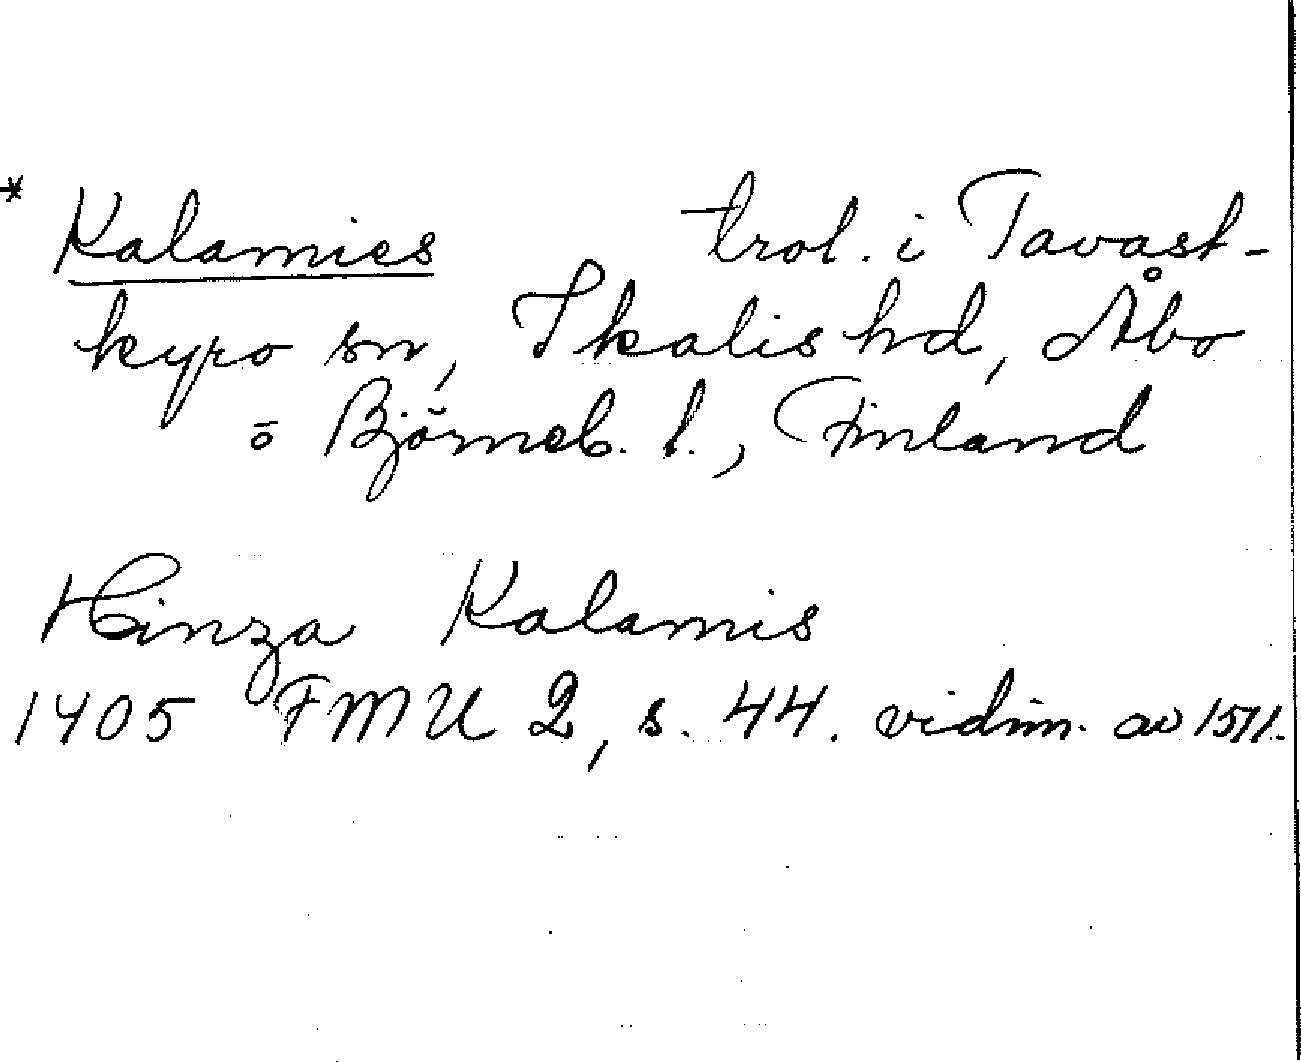 * Kalamies trol. i Tavast-
kyro sn, Ikalis hd, Åbo
o Björneb. l., Finland
Hinza Kalamis
1405 FMU 2, s. 44. vidim. av 1511.